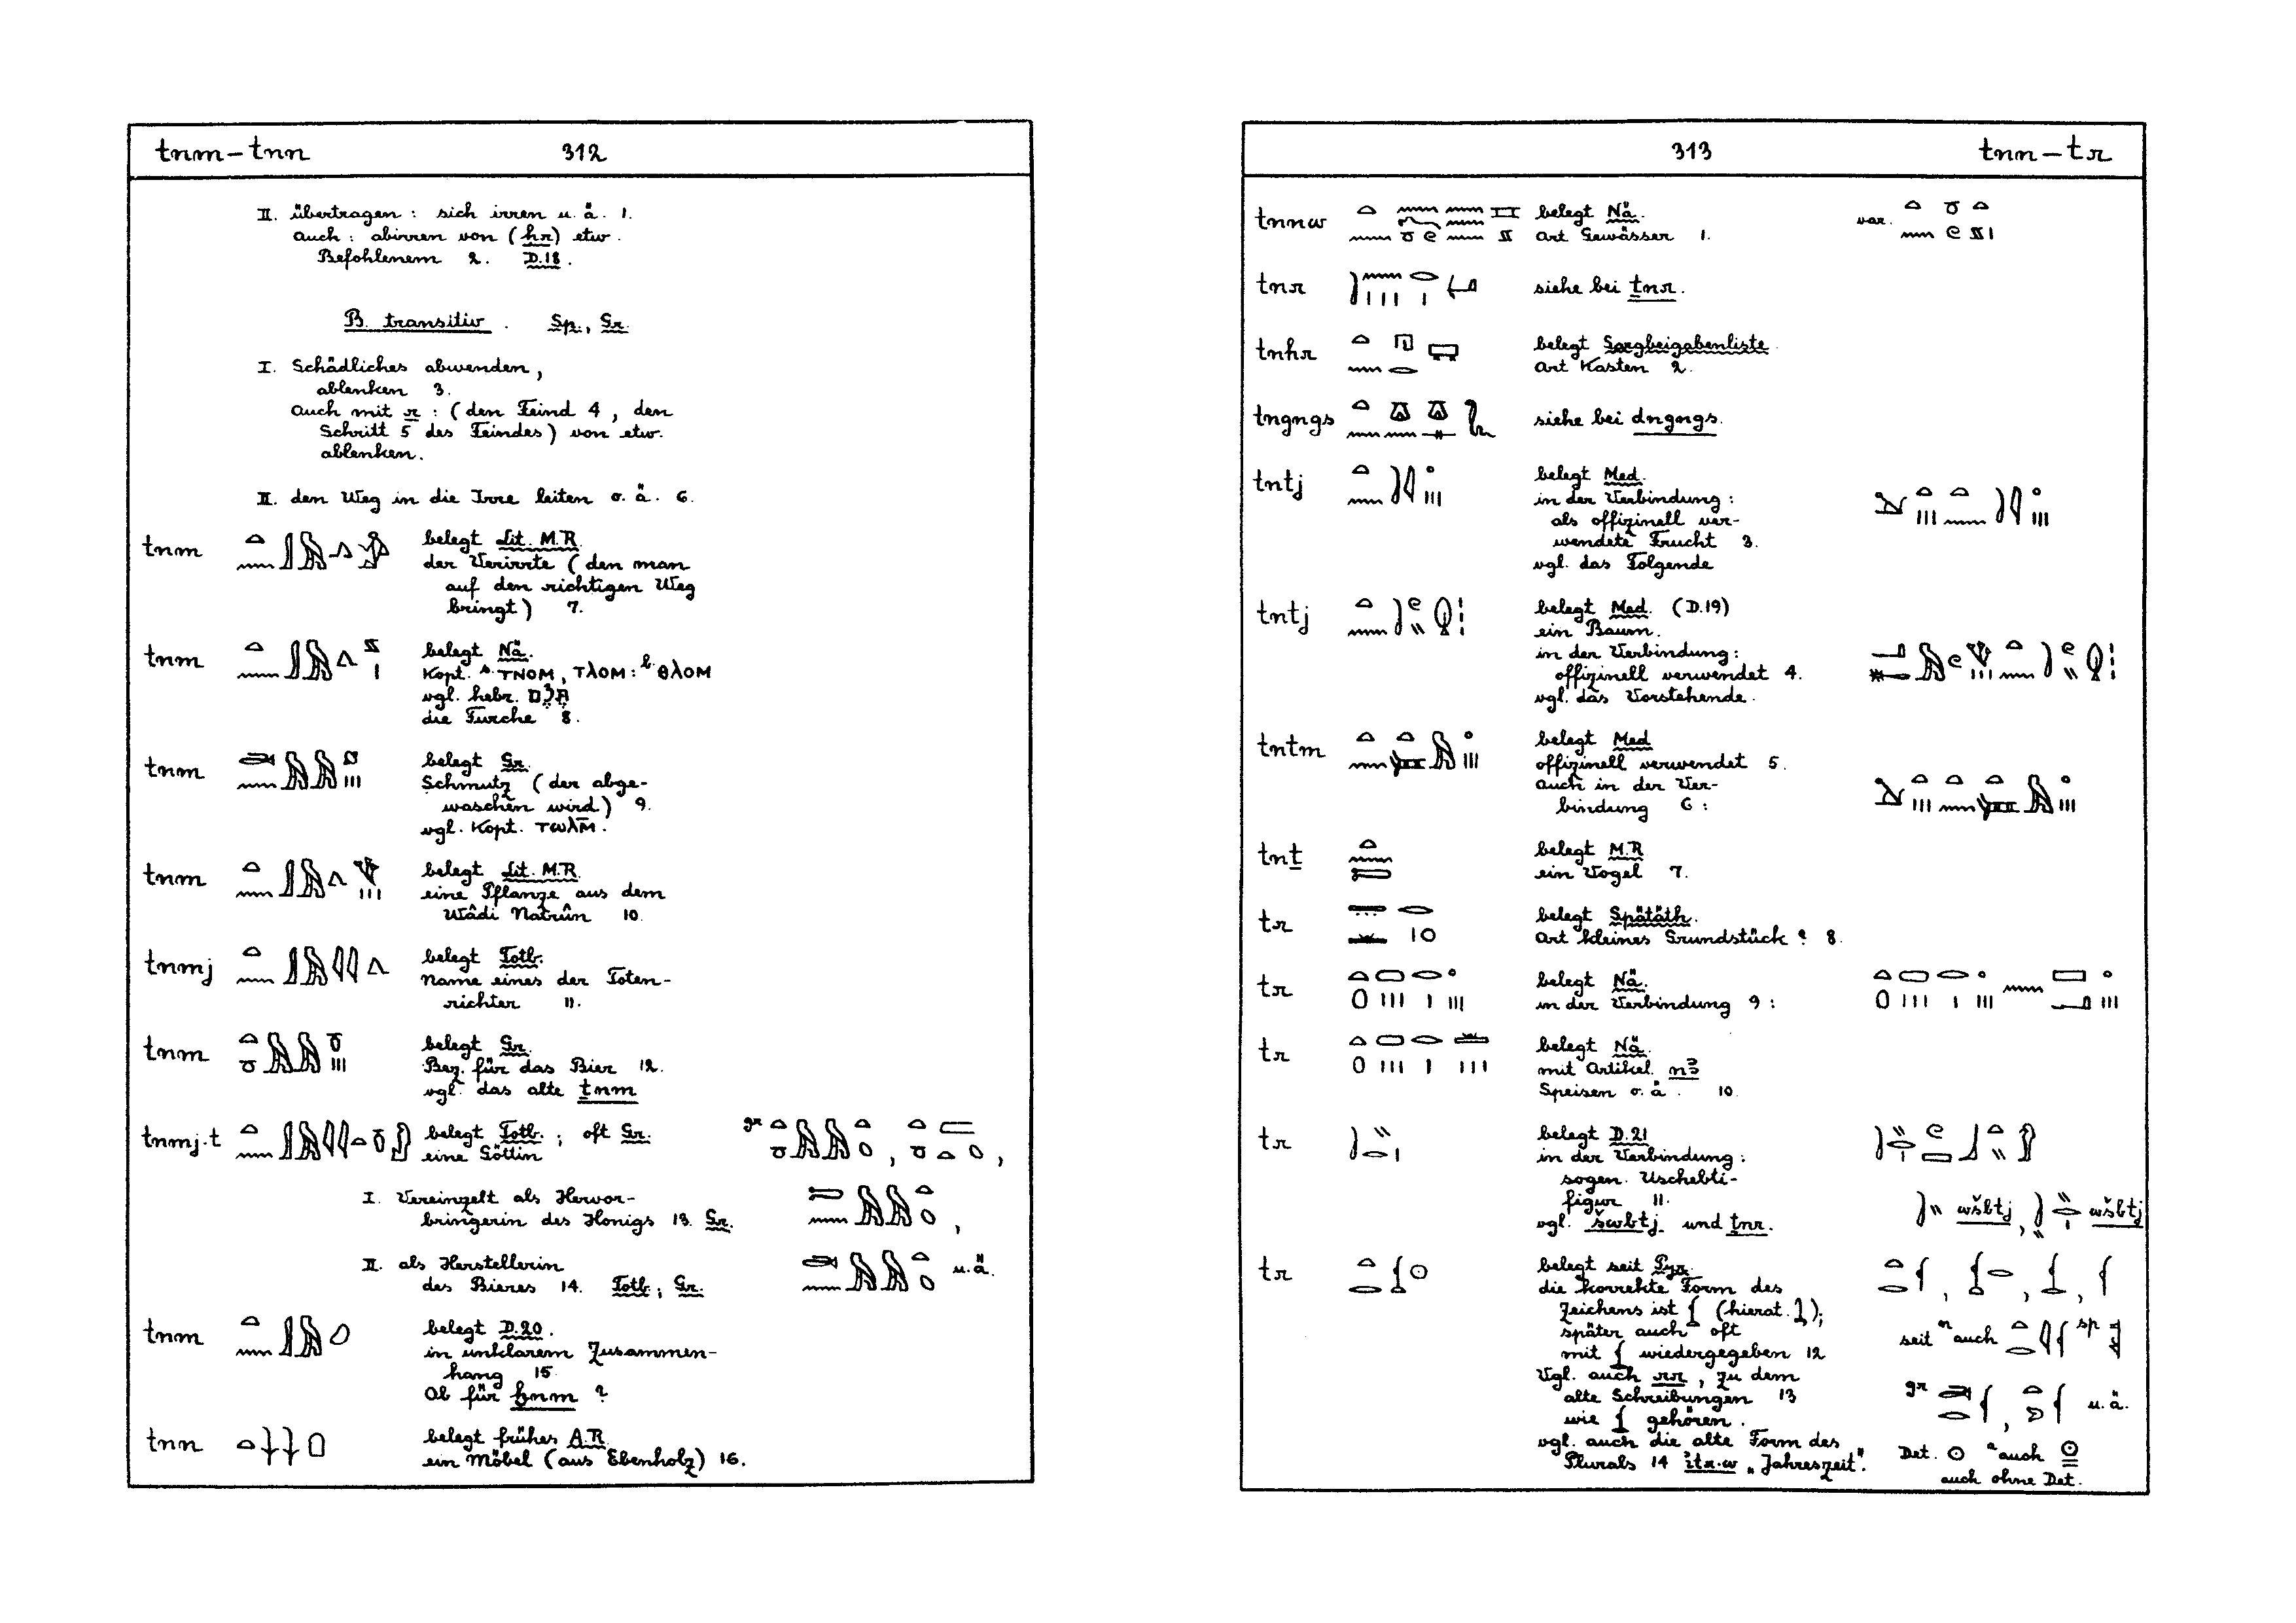 tnm – tnn 312
II. übertragen : sich irren u. ä. 1.
auch : abirren von (ḥr) etw.
Befohlenem 2. D.18.
B. transitiv. Sp., Gr.
I. Schädliches abwenden,
ablenken 3.
auch mit r : (den Feind 4, den
Schritt 5 des Feindes) von etw.
ablenken.
II. den Weg in die Irre leiten o. ä. 6.
tnm belegt Lit. M.R.
der Verirrte (den man
auf den richtigen Weg
bringt) 7.
tnm belegt Nä.
Kopt. ⲧⲛⲟⲙ, ⲧⲗⲟⲙ : b. ⲑⲗⲟⲙ
vgl. hebr.
die Furche 8.
tnm belegt Gr.
Schmutz (der abge-
waschen wird) 9.
vgl. Kopt. ⲧⲱⲗⲙ̄.
tnm belegt Lit. M.R.
eine Pflanze aus dem
Wâdi Natrûn 10.
tnmj belegt Totb.
Name eines der Toten-
richter 11.
tnm belegt Gr.
Bez. für das Bier 12.
vgl. das alte ṯnm
tnmj.t belegt Totb. ; oft Gr. gr
eine Göttin
I. Vereinzelt als Hervor-
bringerin des Honigs 13. Gr.
II. als Herstellerin u. ä.
des Bieres 14. Totb.; Gr.
tnm belegt D.20.
in unklarem Zusammen-
hang 15.
Ob für ẖnm ?
tnn belegt frühes A.R.
ein Möbel (aus Ebenholz) 16.
313 tnn – tr
tnnw belegt Nä. var.
Art Gewässer 1.
tnr siehe bei ṯnr.
tnhr belegt Sargbeigabenliste.
Art Kasten 2.
tngngs siehe bei dngngs.
tntj belegt Med.
in der Verbindung :
als offizinell ver-
wendete Frucht 3.
vgl. das Folgende
tntj belegt Med. (D.19)
ein Baum.
in der Verbindung :
offizinell verwendet 4.
vgl. das Vorstehende.
tntm belegt Med
offizinell verwendet 5.
auch in der Ver-
bindung 6 :
tnṯ belegt M.R
ein Vogel 7.
tr belegt Spätäth.
Art kleines Grundstück ? 8.
tr belegt Nä.
in der Verbindung 9 :
tr belegt Nä.
mit Artikel nꜣ
Speisen o. ä. 10.
tr belegt D.21
in der Verbindung :
sogen. Uschebti-
figur 11. wšbtj, wšbtj
vgl. šwbtj und tnr.
tr belegt seit Pyr.
die korrekte Form des
Zeichens ist (hierat. );
später auch oft seit n auch sp
mit wiedergegeben 12
Vgl. auch rr, zu dem
alte Schreibungen 13 gr u. ä.
wie gehören.
vgl. auch die alte Form des Det. a auch
Plurals 14 ı͗tr.w „Jahreszeit".
auch ohne Det.